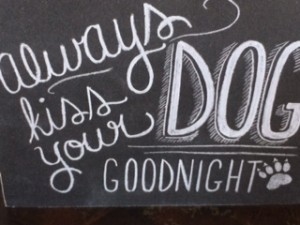 always
kiss
your
DOG
GOODNIGHT